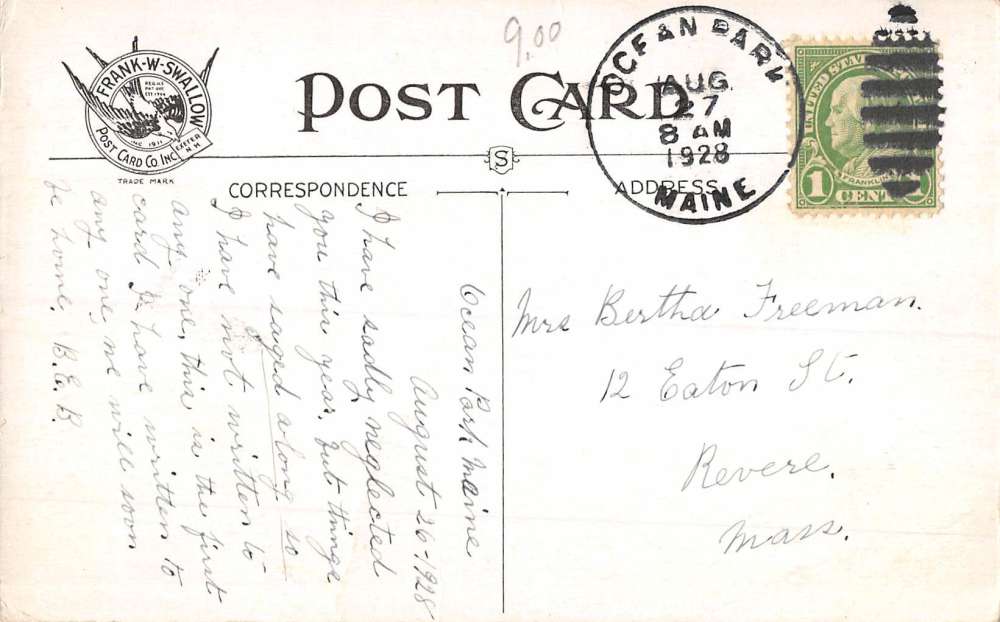 9.00
FRANK-W-SWALLOW
POST CARD CO. INC.
INC 1911
EXETER
N.H.
TRADE MARK
POST CARD
OCEAN PARK
AUG
27
8 AM
1928
MAINE
UNITED STATES
FRANKLIN
1 CENT
S
CORRESPONDENCE
ADDRESS
Ocean Park Maine
August 26-1928
I have sadly neglected
you this year, but things
have saged along so
I have not written to
any one, this is the first
card I have written to
any one, we will soon
be home. B.E.B.
Mrs Bertha Freeman.
12 Eaton St.
Revere.
Mass.